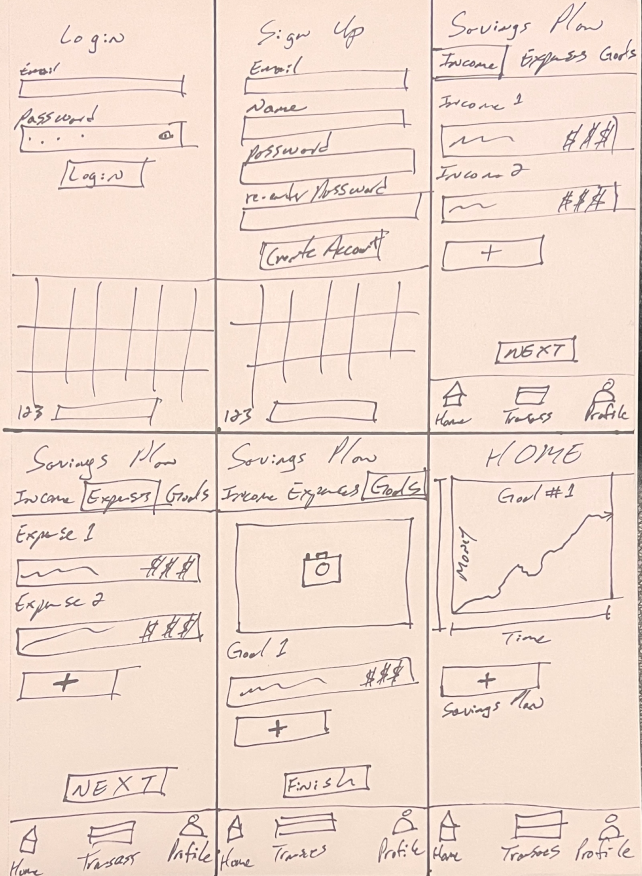 Login
Email
Password
Login
123
Sign Up
Email
Name
Password
re-enter Password
Create Account
123
Savings Plan
Income Expenses Goals
Income 1
$$$
Income 2
$$$
+
NEXT
Home Profile
Savings Plan
Income Expenses Goals
Expense 1
$$$
Expense 2
$$$
+
NEXT
Home Profile
Savings Plan
Income Expenses Goals
Goal 1
$$$
+
Finish
Home Profile
HOME
Goal #1
Money
Time
+
Savings Plan
Home Profile